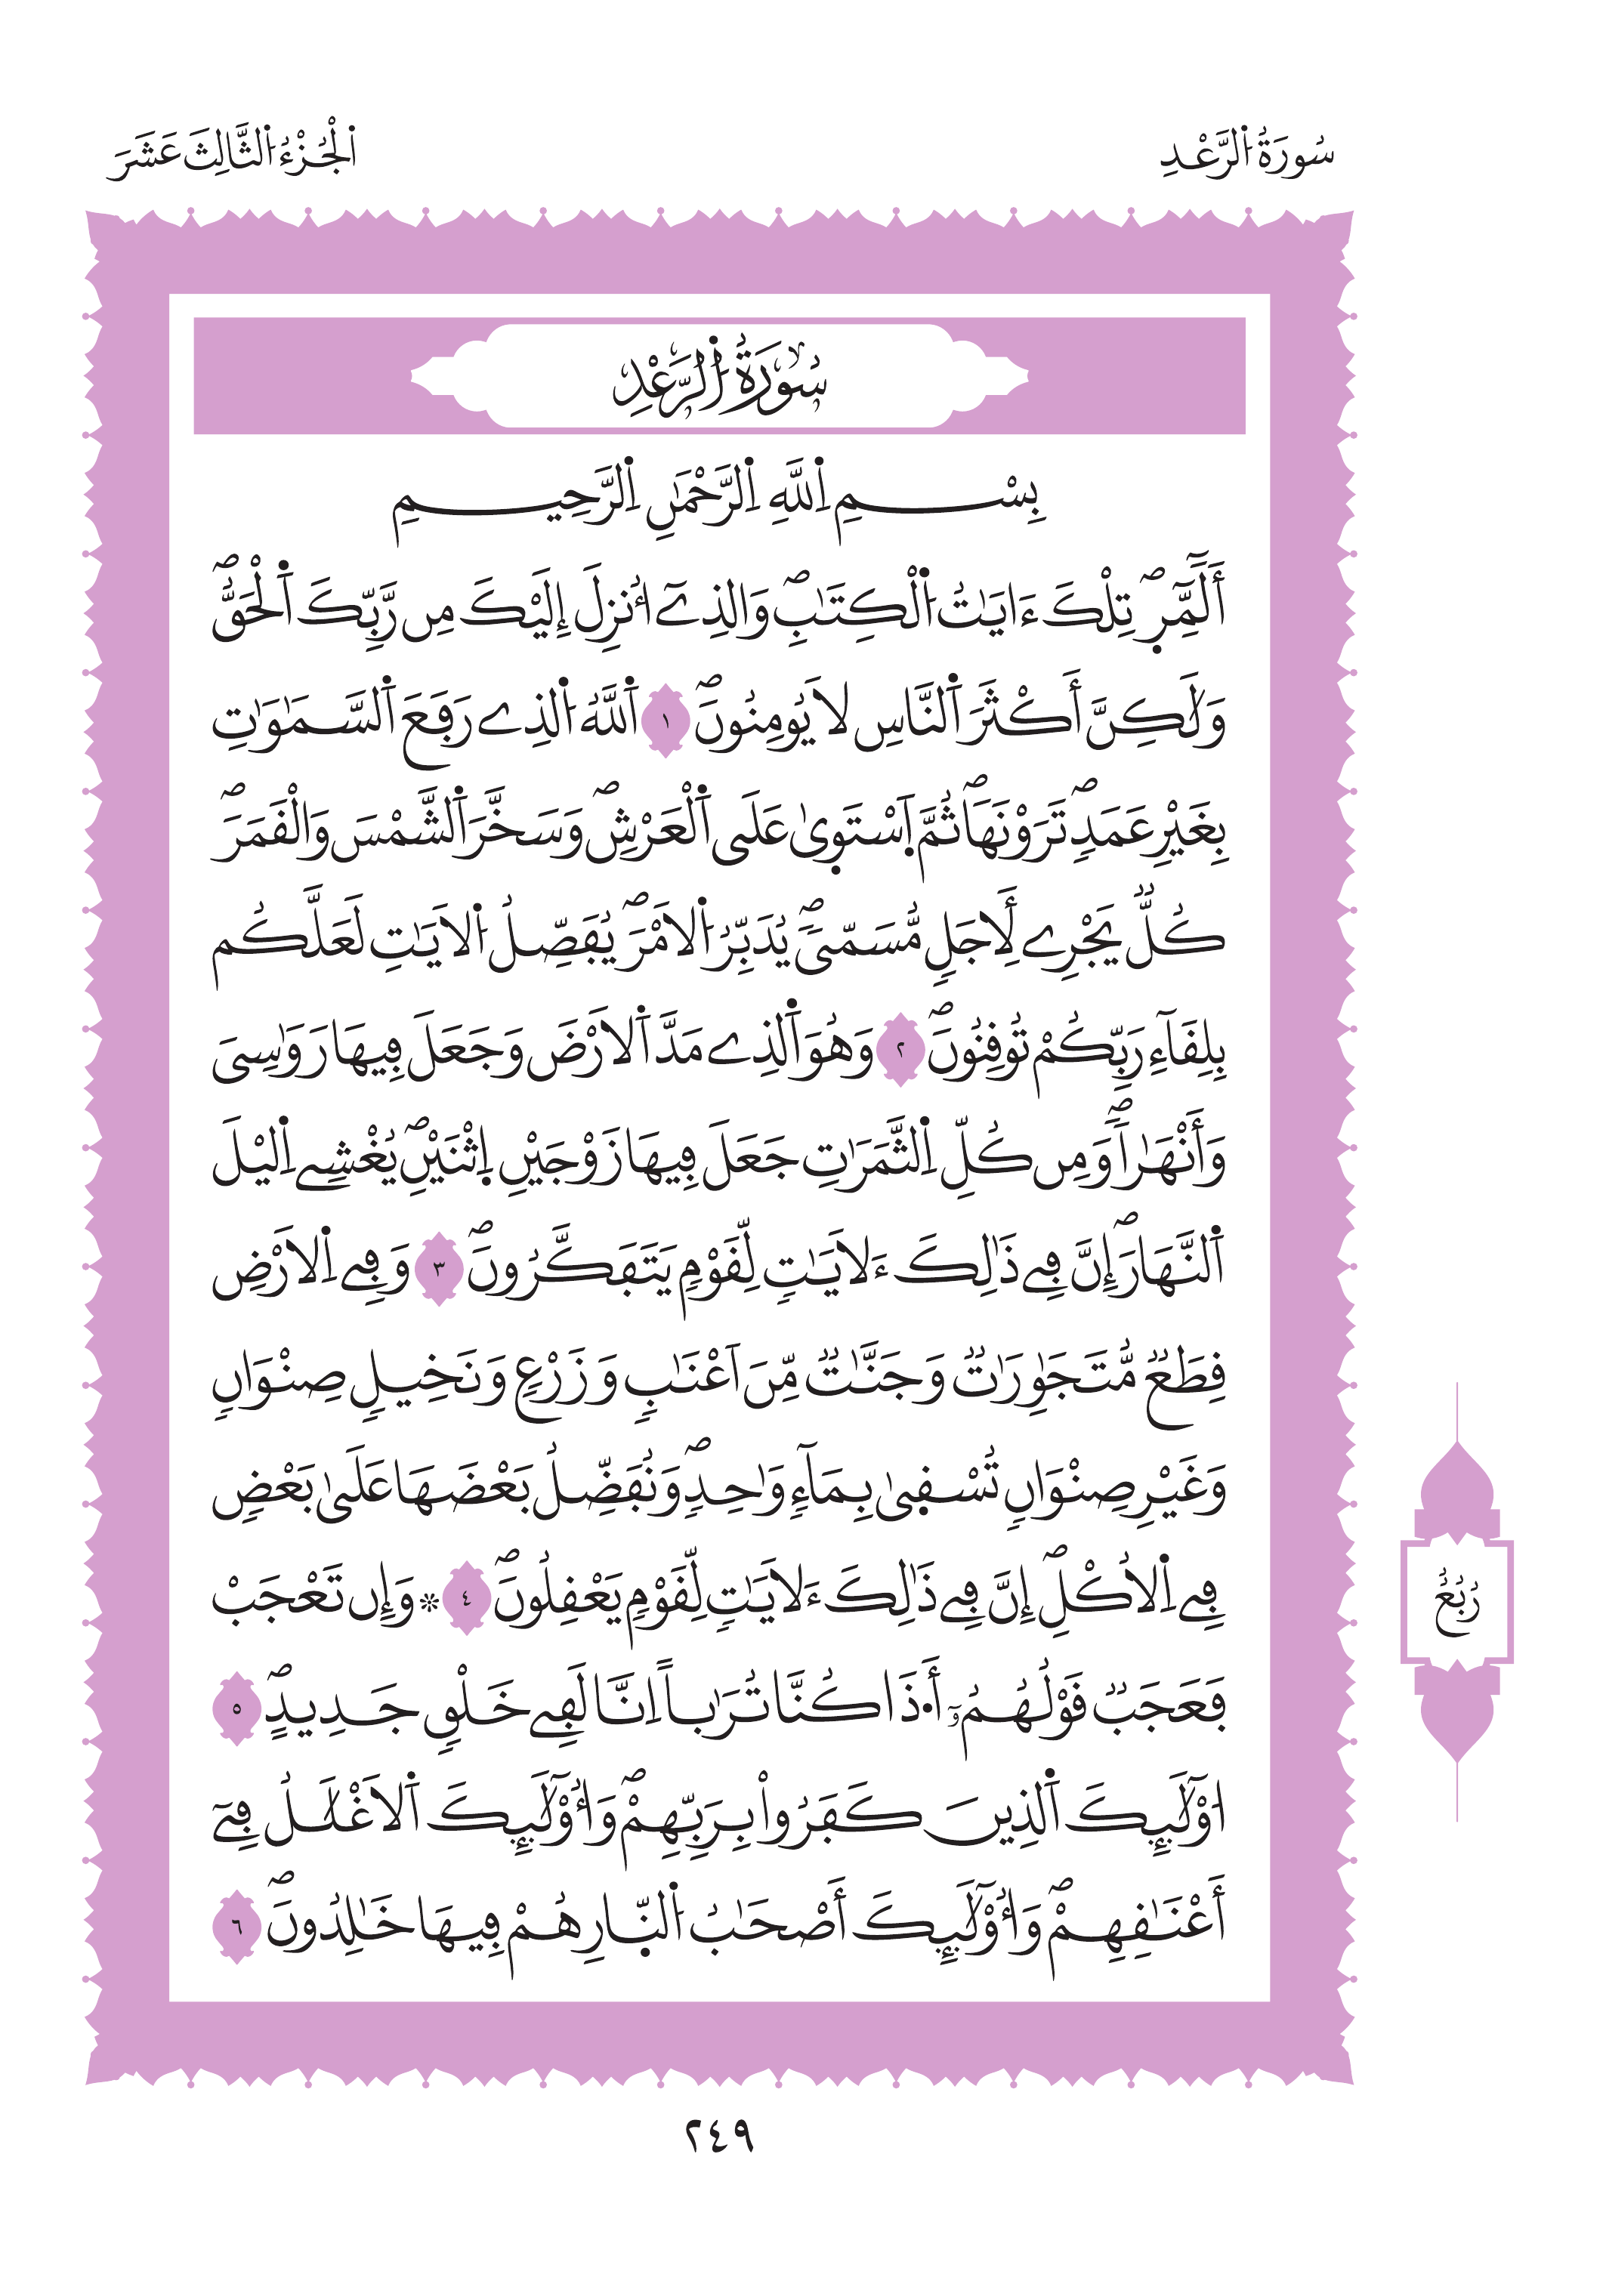 سُورَةُ اُ۬لرَّعْدِ
اَ۬لْجُزْءُ اُ۬لثَّالِثَ عَشَرَ
سُورَةُ اُ۬لرَّعْدِ
بِسْمِ اِ۬للَّهِ اِ۬لرَّحْمَٰنِ اِ۬لرَّحِيمِ
أَلَٓمِّٓر۪ۖ تِلْكَ ءَايَٰتُ اُ۬لْكِتَٰبِۖ وَالذِےٓ أُنزِلَ إِلَيْكَ مِن رَّبِّكَ اَ۬لْحَقُّۖ
وَلَٰكِنَّ أَكْثَرَ اَ۬لنَّاسِ لَا يُومِنُونَۖ ١ اَ۬للَّهُ اُ۬لذِے رَفَعَ اَ۬لسَّمَٰوَٰتِ
بِغَيْرِ عَمَدٖ تَرَوْنَهَاۖ ثُمَّ اَ۪سْتَو۪يٰ عَلَي اَ۬لْعَرْشِۖ وَسَخَّرَ اَ۬لشَّمْسَ وَالْقَمَرَۖ
كُلّٞ يَجْرِے لِأَجَلٖ مُّسَمّيٗۖ يُدَبِّرُ اُ۬لَامْرَۖ يُفَصِّلُ اُ۬لَايَٰتِ لَعَلَّكُم
بِلِقَآءِ رَبِّكُمْ تُوقِنُونَۖ ٢ وَهُوَ اَ۬لذِے مَدَّ اَ۬لَارْضَ وَجَعَلَ فِيهَا رَوَٰسِيَ
وَأَنْهَٰراٗۖ وَمِن كُلِّ اِ۬لثَّمَرَٰتِ جَعَلَ فِيهَا زَوْجَيْنِ اِ۪ثْنَيْنِۖ يُغْشِے اِ۬ليْلَ
اَ۬لنَّهَارَۖ إِنَّ فِے ذَٰلِكَ ءَلَايَٰتٖ لِّقَوْمٖ يَتَفَكَّرُونَۖ ٣ وَفِے اِ۬لَارْضِ
قِطَعٞ مُّتَجَٰوِرَٰتٞ وَجَنَّٰتٞ مِّنَ اَعْنَٰبٖ وَزَرْعٖ وَنَخِيلٖ صِنْوَانٖ
وَغَيْرِ صِنْوَانٖ تُسْق۪يٰ بِمَآءٖ وَٰحِدٖۖ وَنُفَضِّلُ بَعْضَهَا عَلَيٰ بَعْضٖ
فِے اِ۬لُاكْلِۖ إِنَّ فِے ذَٰلِكَ ءَلَايَٰتٖ لِّقَوْمٖ يَعْقِلُونَۖ ٤ ۞وَإِن تَعْجَبْ
فَعَجَبٞ قَوْلُهُمُۥٓ أَ۟ذَا كُنَّا تُرَٰباً اِنَّا لَفِے خَلْقٖ جَدِيدٍۖ ٥
اُوْلَٰٓئِكَ اَ۬لذِينَ كَفَرُواْ بِرَبِّهِمْۖ وَأُوْلَٰٓئِكَ اَ۬لَاغْلَٰلُ فِےٓ
أَعْنَٰقِهِمْۖ وَأُوْلَٰٓئِكَ أَصْحَٰبُ اُ۬لنّ۪ارِ هُمْ فِيهَا خَٰلِدُونَۖ ٦
رُبُعُ
٢٤٩